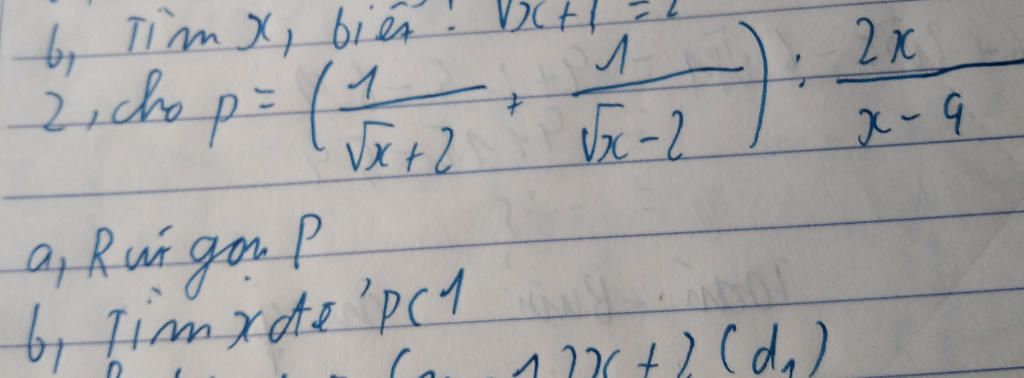 b, Tìm x, biết: √x+1 = 2
2, cho p = (1/(√x+2) + 1/(√x-2)) : 2x/(x-9)
a, Rút gọn P
b, Tìm x để P<1
1)x+2 (d₁)